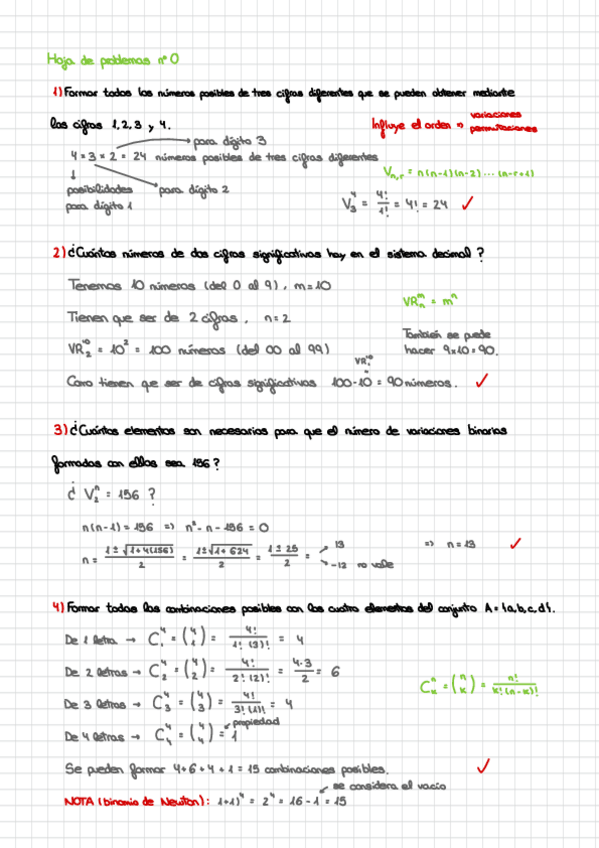 Hoja de problemas nº 0
1) Formar todos los números posibles de tres cifras diferentes que se pueden obtener mediante
las cifras 1, 2, 3 y 4.
Influye el orden => variaciones
permutaciones
para dígito 3
4 * 3 * 2 = 24 números posibles de tres cifras diferentes
V n,r = n(n-1)(n-2)...(n-r+1)
posibilidades para dígito 2
para dígito 1
V₃⁴ = 4!/1! = 4! = 24 ✓
2) ¿Cuántos números de dos cifras significativas hay en el sistema decimal?
Tenemos 10 números (del 0 al 9), m=10
VRₙᵐ = mⁿ
Tienen que ser de 2 cifras, n=2
También se puede
VR₂¹⁰ = 10² = 100 números (del 00 al 99)
hacer 9x10=90.
VR₁¹⁰
Como tienen que ser de cifras significativas 100-10 = 90 números. ✓
3) ¿Cuántos elementos son necesarios para que el número de variaciones binarias
formadas con ellos sea 156?
¿ V₂ⁿ = 156 ?
n(n-1) = 156 => n² - n - 156 = 0
n = (1±√(1+4(156)))/2 = (1±√(1+624))/2 = (1±25)/2 = 13
-12 no vale
=> n=13 ✓
4) Formar todas las combinaciones posibles con los cuatro elementos del conjunto A={a,b,c,d}.
De 1 letra → C₁⁴ = (4 1) = 4!/(1!(3)!) = 4
De 2 letras → C₂⁴ = (4 2) = 4!/(2!(2)!) = 4·3/2 = 6
Cₖⁿ = (n k) = n!/(k!(n-k)!)
De 3 letras → C₃⁴ = (4 3) = 4!/(3!(1)!) = 4
propiedad
De 4 letras → C₄⁴ = (4 4) = 1
Se pueden formar 4+6+4+1 = 15 combinaciones posibles. ✓
se considera el vacío
NOTA (binomio de Newton): 1+1)⁴ = 2⁴ = 16-1 = 15